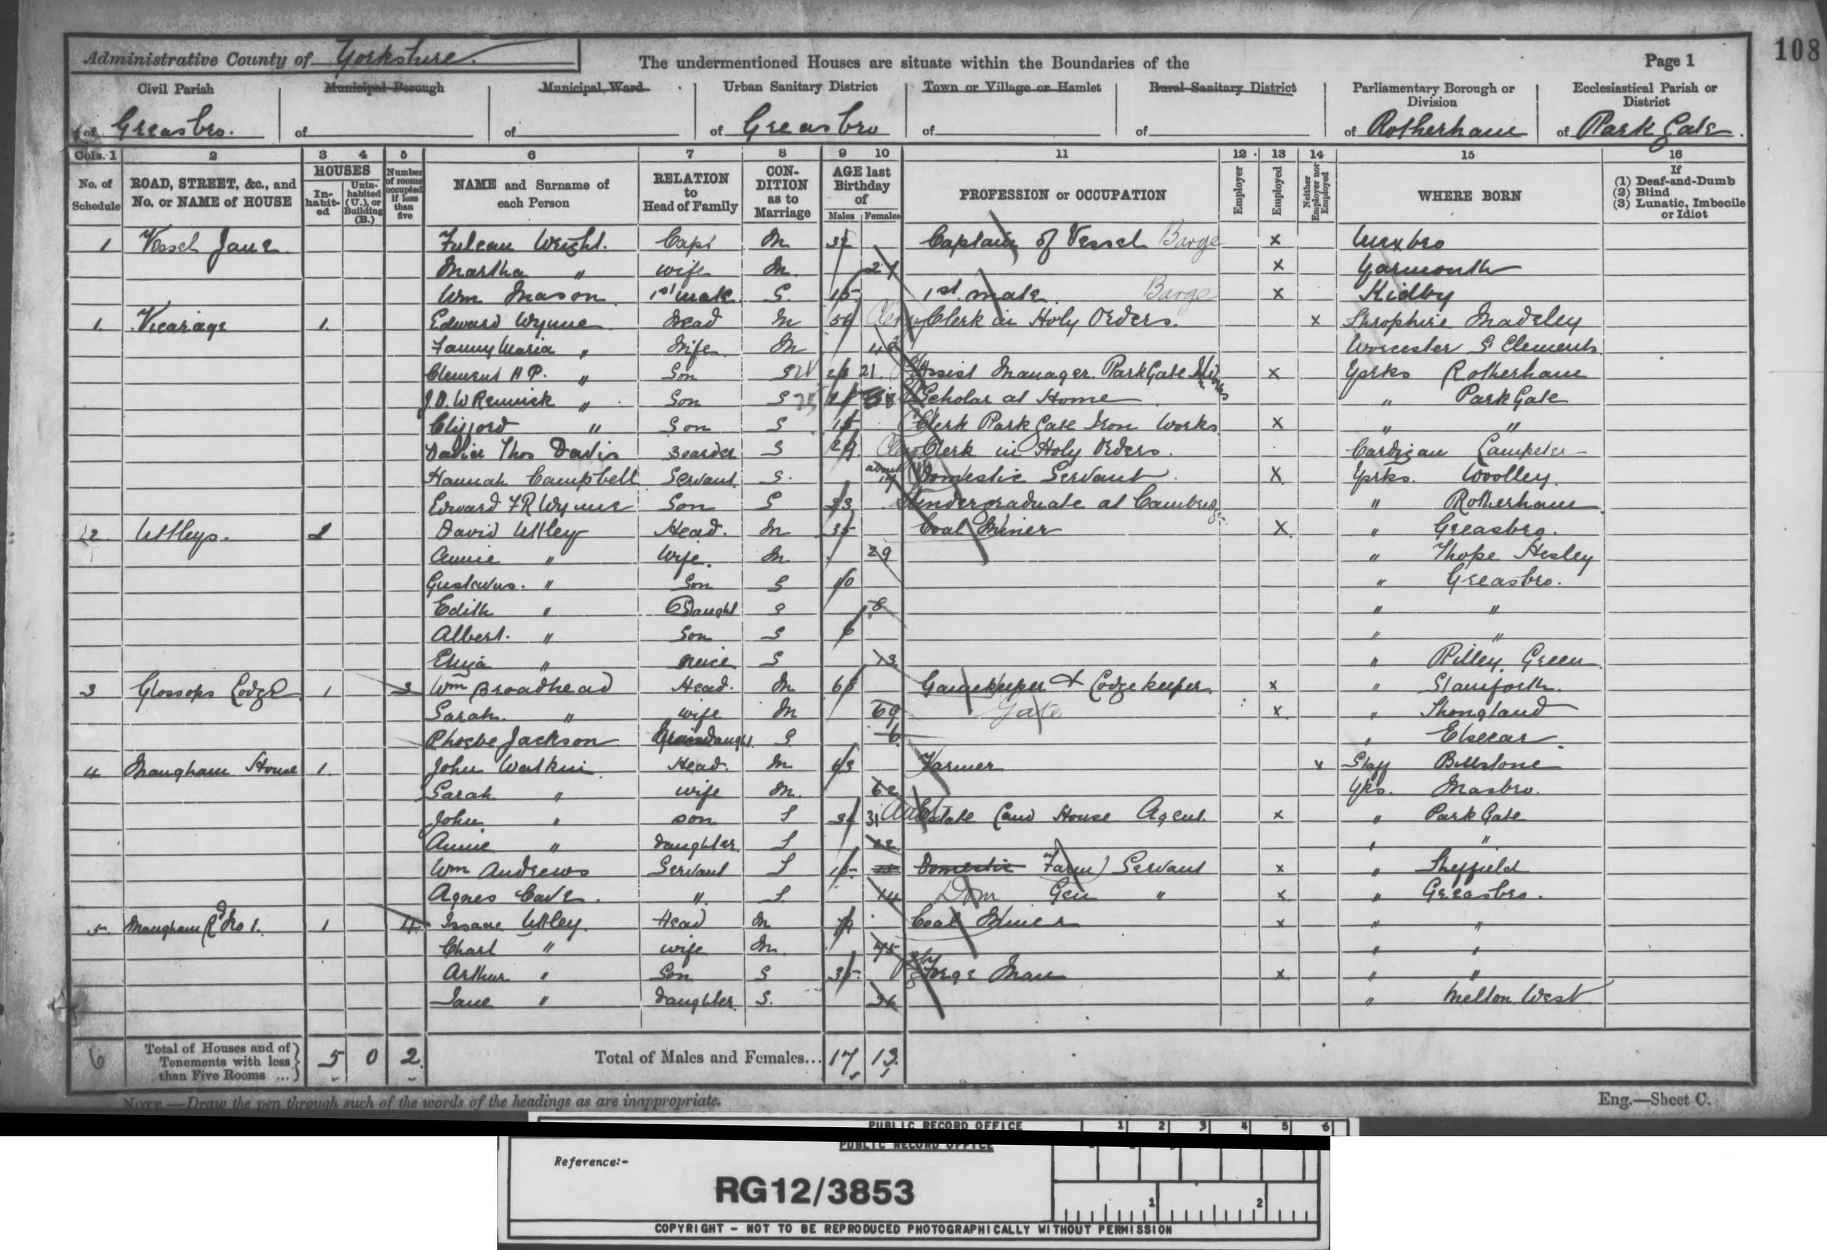 108
Administrative County of Yorkshire The undermentioned Houses are situate within the Boundaries of the Page 1
Civil Parish Municipal Borough Municipal Ward Urban Sanitary District Town or Village or Hamlet Rural Sanitary District Parliamentary Borough or Division Ecclesiastical Parish or District
of Greasbro. of of of Greasbro of of of Rotherham of Park Gate
Cols. 1 2 3 4 5 6 7 8 9 10 11 12 13 14 15 16
No. of Schedule ROAD, STREET, &c., and No. or NAME of HOUSE HOUSES In-habit-ed Unin-habited (U.), or Building (B.) Number of rooms occupied if less than five NAME and Surname of each Person RELATION to Head of Family CON-DITION as to Marriage AGE last Birthday of Males Females PROFESSION or OCCUPATION Employer Employed Neither Employer nor Employed WHERE BORN If (1) Deaf-and-Dumb (2) Blind (3) Lunatic, Imbecile or Idiot
1 Vessel Jane Wright. Capt M Captain of Vessel Barge x Mexbro
Martha " wife M. x Yarmouth
Wm Mason 1st mate S. 15 1st mate. Barge x Kidby
1. Vicarage 1. Edward Wynne Head M Clerk in Holy Orders. x Shrophire Madeley
Fanny Maria " Wife M Worcester St Clements
Clement H P. " Son S 21 Assist Manager ParkGate x Yorks Rotherham
J.D.W Renwick " Son S Scholar at Home " ParkGate
Clifford " Son S 15 Clerk Park Gate Iron Works x " "
Thos Davis Boarder S Clerk in Holy Orders. Cardigan Lampeter
Hannah Campbell Servant S. Domestic Servant X Yrks. Woolley
Edward F R Wynne Son S 23 Undergraduate at Cambridge " Rotherham
2 Uttleys. 1 David Uttley Head. M 35 Coal Miner X " Greasbro.
Annie " Wife. M 29 " Thope Hesley
Gustavus. " Son S 10 " Greasbro.
Edith " Daught S 8 " "
Albert. " Son S 6 " "
Eliza " neice S 13 " Pilley Green
3 Glossops Lodge 1 3 Wm Broadhead Head. M Gamekeeper & Lodge keeper x " Stainforth.
Sarah. " wife M 69 Gate x "
Phoebe Jackson GrandDaught S 6 " Elsecar.
4 Maugham House 1. John Watkin Head. M 63 Farmer x Staff Billstone
Sarah " wife M. 62 Yks. Masbro.
John " son S 31 Estate Land House Agent x " Park Gate
Annie " daughter S 22 " "
Wm Andrews Servant S 15 Domestic Farm Servant x " Sheffield
Agnes Cave. " S 14 Dom Gen " x " Greasbro.
5 Maugham Rd No 1. 1 4 Isaac Uttley Head M Coal Miner x " "
Charl " wife M 45 " "
Arthur " Son S Forge Man x " "
Jane " daughter S. " Melton West
6 Total of Houses and of Tenements with less than Five Rooms ... 5 0 2 Total of Males and Females... 17 13
NOTE.—Draw the pen through such of the words of the headings as are inappropriate. Eng.—Sheet C.
PUBLIC RECORD OFFICE 1 2 3 4 5 6
PUBLIC RECORD OFFICE
Reference:-
RG12/3853
1 2
COPYRIGHT - NOT TO BE REPRODUCED PHOTOGRAPHICALLY WITHOUT PERMISSION